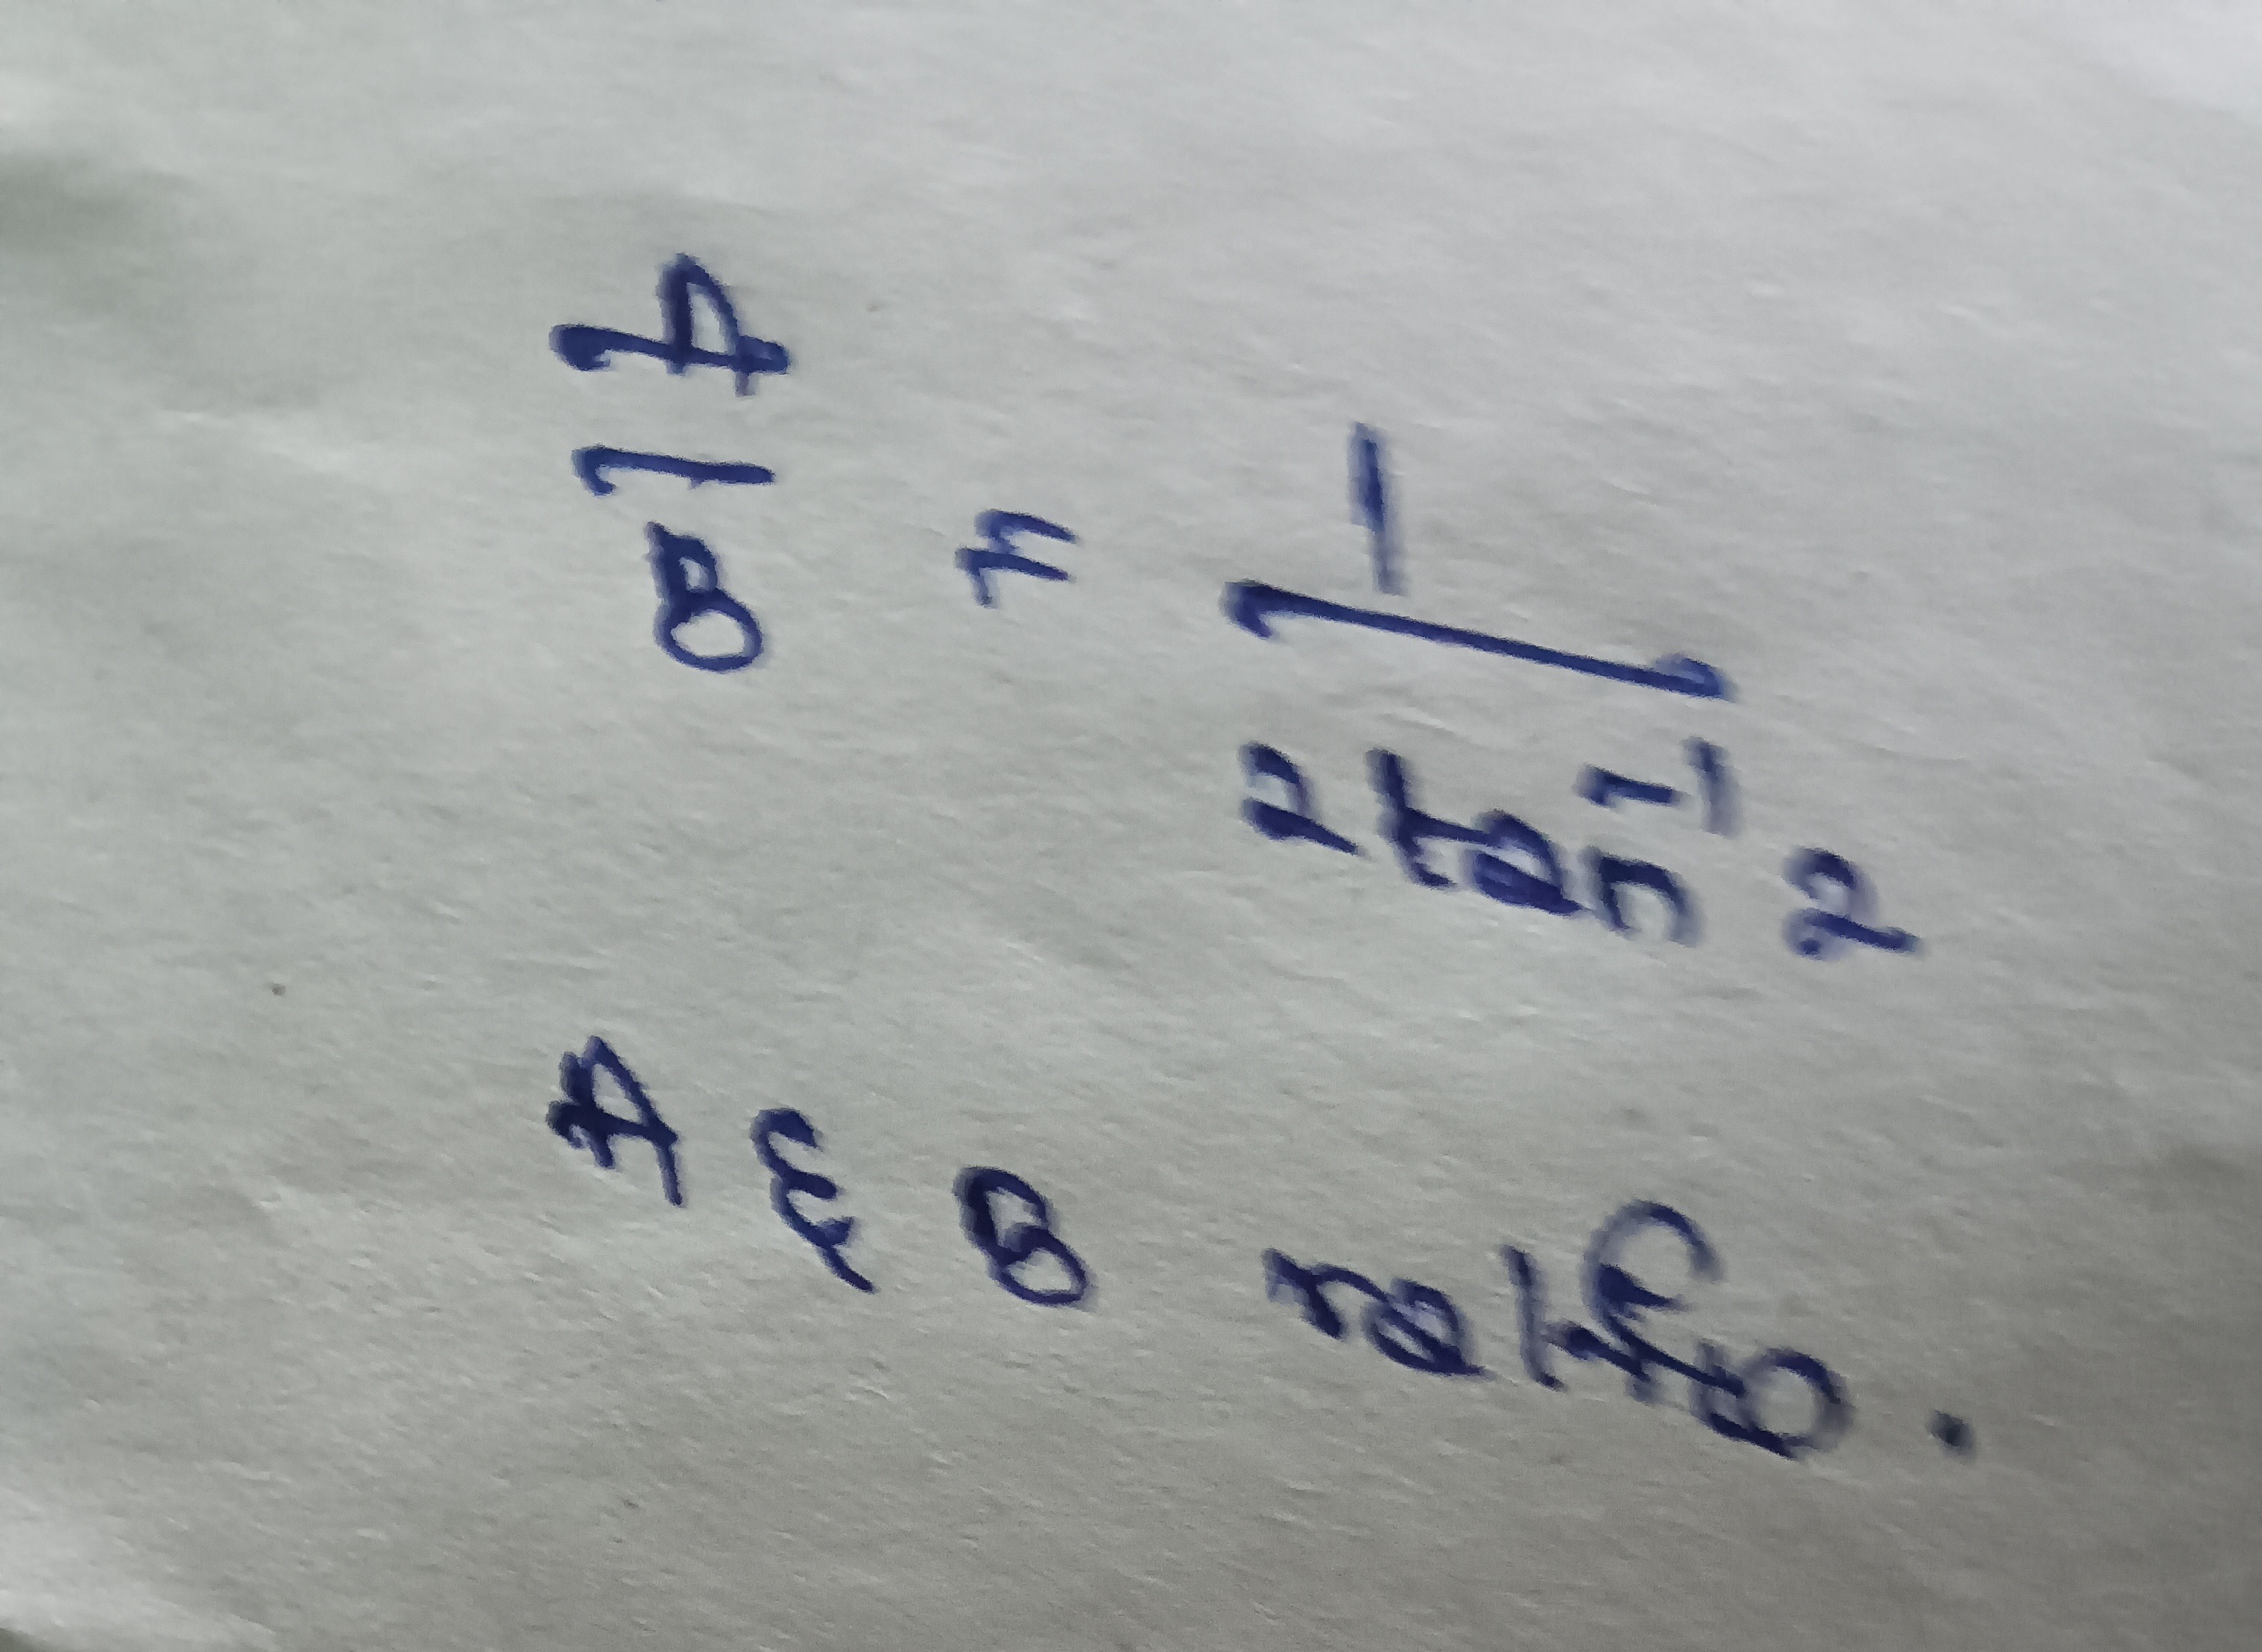 A/B = 1/(2 tan⁻¹ 2)
A & B ratio.